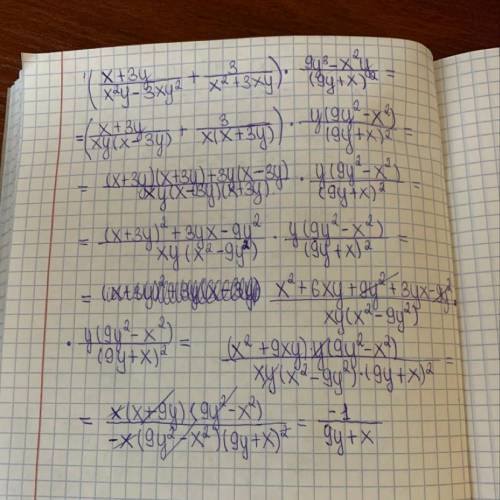 (x+3y/x²y-3xy² + 3/x²+3xy) · 9y³-x²y/(9y+x)² =
=(x+3y/xy(x-3y) + 3/x(x+3y)) · y(9y²-x²)/(9y+x)² =
= (x+3y)(x+3y)+3y(x-3y)/xy(x-3y)(x+3y) · y(9y²-x²)/(9y+x)² =
= (x+3y)²+3yx-9y²/xy(x²-9y²) · y(9y²-x²)/(9y+x)² =
= x²+6xy+9y²+3yx-9y²/xy(x²-9y²) ·
· y(9y²-x²)/(9y+x)² = (x²+9xy)·y(9y²-x²)/xy(x²-9y²)·(9y+x)² =
= x(x+9y)(9y²-x²)/-x(9y²-x²)(9y+x)² = -1/9y+x